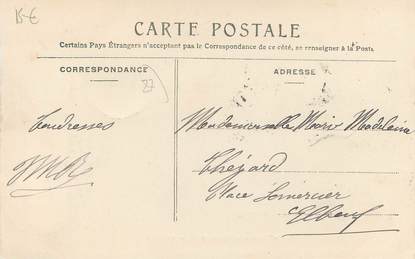 15-€
CARTE POSTALE
Certains Pays Étrangers n'acceptant pas le Correspondance de ce côté, se renseigner à la Poste
CORRESPONDANCE
ADRESSE
27
Tendresses
Mademoiselle Marie Madeleine
Thézard
Place Lemercier
Elbeuf